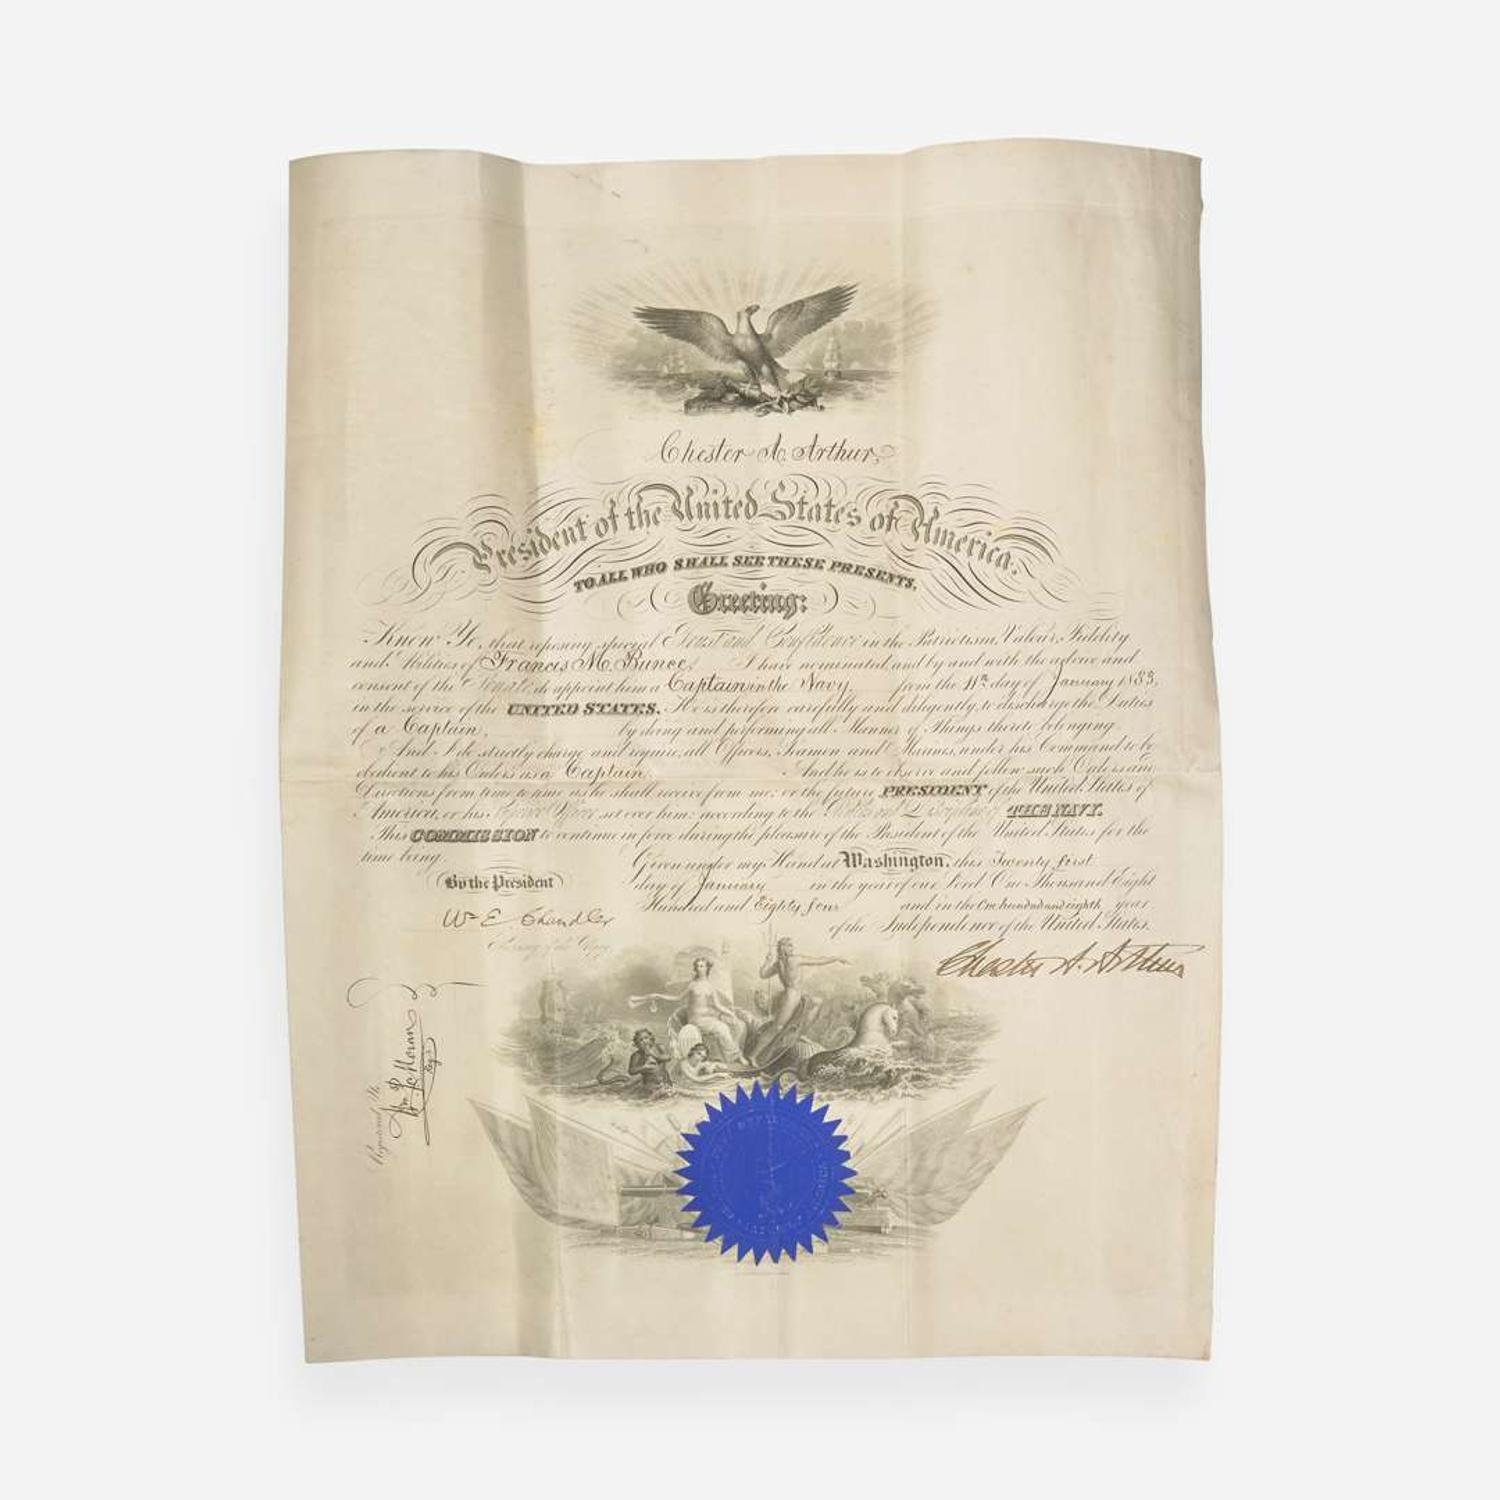 Chester A. Arthur,
President of the United States of America.
TO ALL WHO SHALL SEE THESE PRESENTS,
Greeting:
Know Ye, that reposing special Trust and Confidence in the Patriotism, Valour, Fidelity
and Abilities of Francis M. Bunce, I have nominated, and by and with the advice and
consent of the Senate, do appoint him a Captain in the Navy from the 11th day of January 1883,
in the service of the UNITED STATES. He is therefore carefully and diligently to discharge the Duties
of a Captain, by doing and performing all Manner of Things thereto belonging.
And I do strictly charge and require all Officers, Seamen and Marines, under his Command to be
obedient to his Orders as a Captain. And he is to observe and follow such Orders and
Directions from time to time as he shall receive from me, or the future PRESIDENT of the United States of
America, or his Superior Officer set over him, according to the Rules and Discipline of THE NAVY.
This COMMISSION to continue in force during the pleasure of the President of the United States for the
time being.
Given under my Hand at Washington, this Twenty first
day of January in the year of our Lord One Thousand Eight
Hundred and Eighty four and in the One hundred and eighth year
of the Independence of the United States.
By the President
Wm E. Chandler
Secretary of the Navy
Chester A. Arthur
Registered
Wm P. Moran